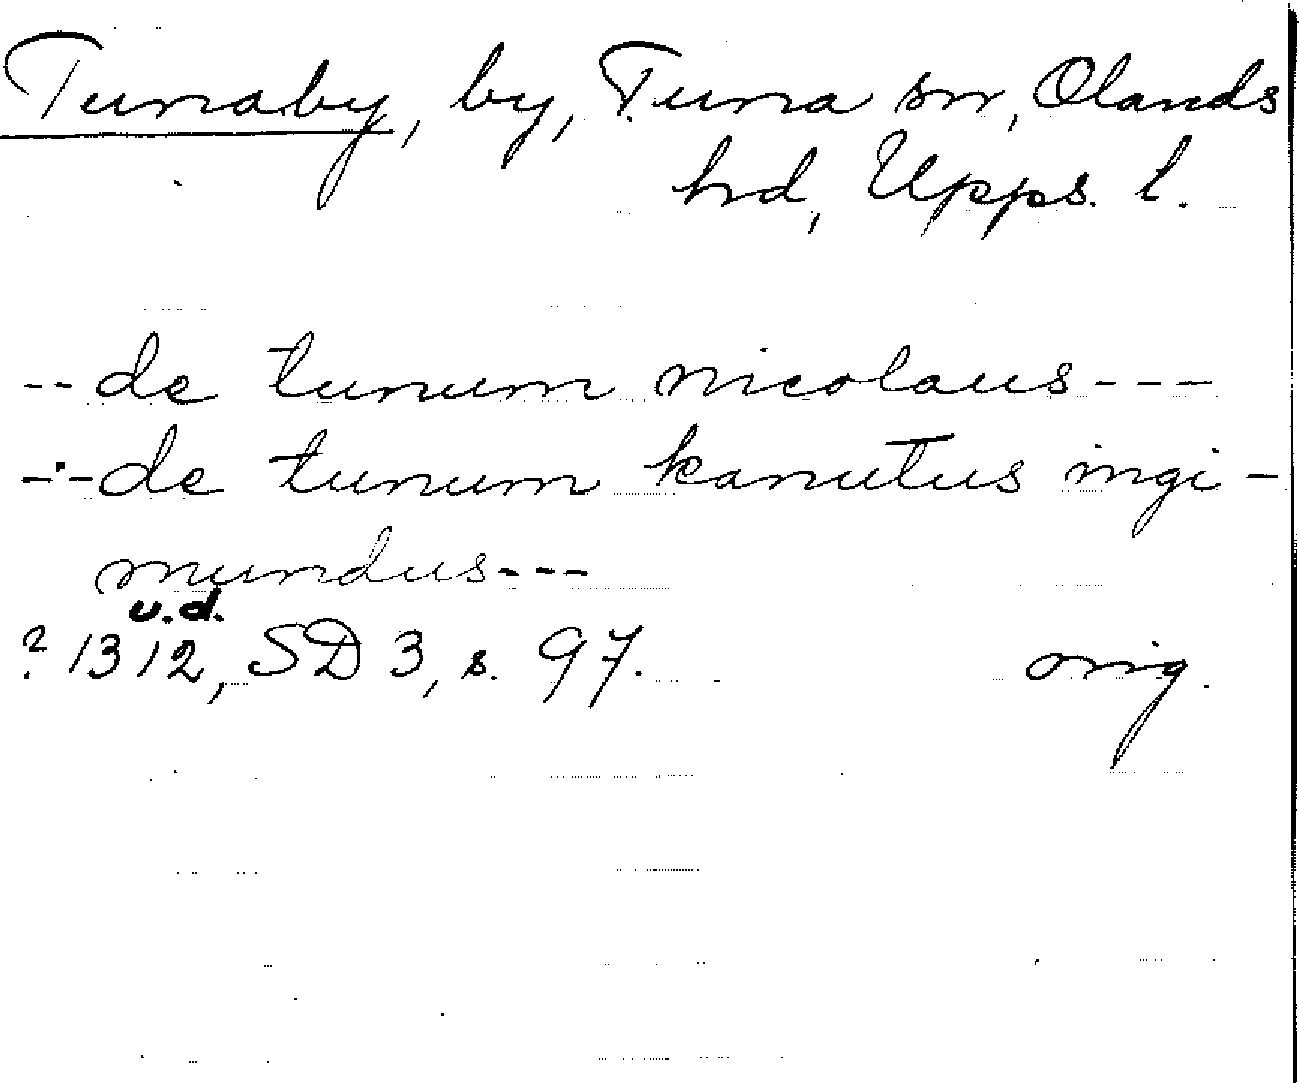 Tunaby, by, Tuna sn, Olands
hd, Upps. l.
--de tunum nicolaus---
--de tunum kanutus ingi-
mundus---
u.d.
? 1312, SD 3, s. 97. orig.